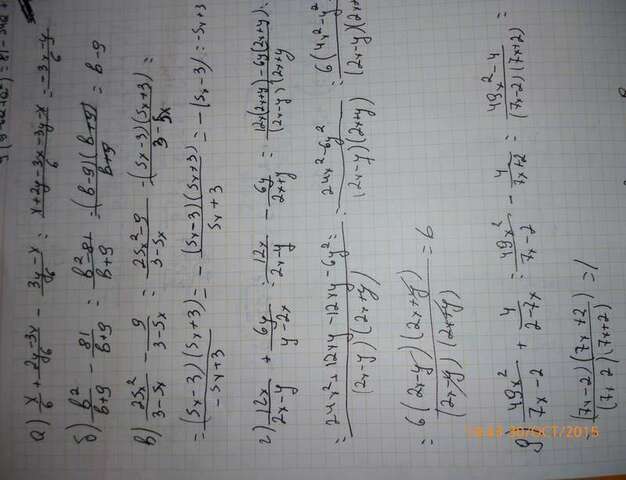 а) x/6 + 2y-3x/6 - 3y-x/6 = x+2y-3x-3y-x/6 = -3x-y/6
б) b²/b+9 - 81/b+9 = b²-81/b+9 = (b-9)(b+9)/b+9 = b-9
в) 25x²/3-5x - 9/3-5x = 25x²-9/3-5x = (5x-3)(5x+3)/3-5x =
= (5x-3)(5x+3)/-5x+3 = - (5x-3)(5x+3)/5x+3 = -(5x-3) = -5x+3
г) 12x/2x-y + 6y/y-2x = 12x/2x-y - 6y/2x+y = 12x(2x+y)-6y(2x+y)/(2x-y)(2x+y
= 24x²+12xy-12xy-6y²/(2x-y)(2x+y) = 24x²-6y²/(2x-y)(2x+y) = 6(4x²-y²/(2x-y)(2x+
= 6(2x-y)(2x+y)/(2x-y)(2x+y) = 6
д) 49x²/7x-2 + 4/2-7x = 49x²/7x-2 - 4/7x+2 = 49x²-4/(7x-2)(7x+2) =
(7x-2)(7x+2)/(7x 2)(7x+2) = 1
30/OCT/2015